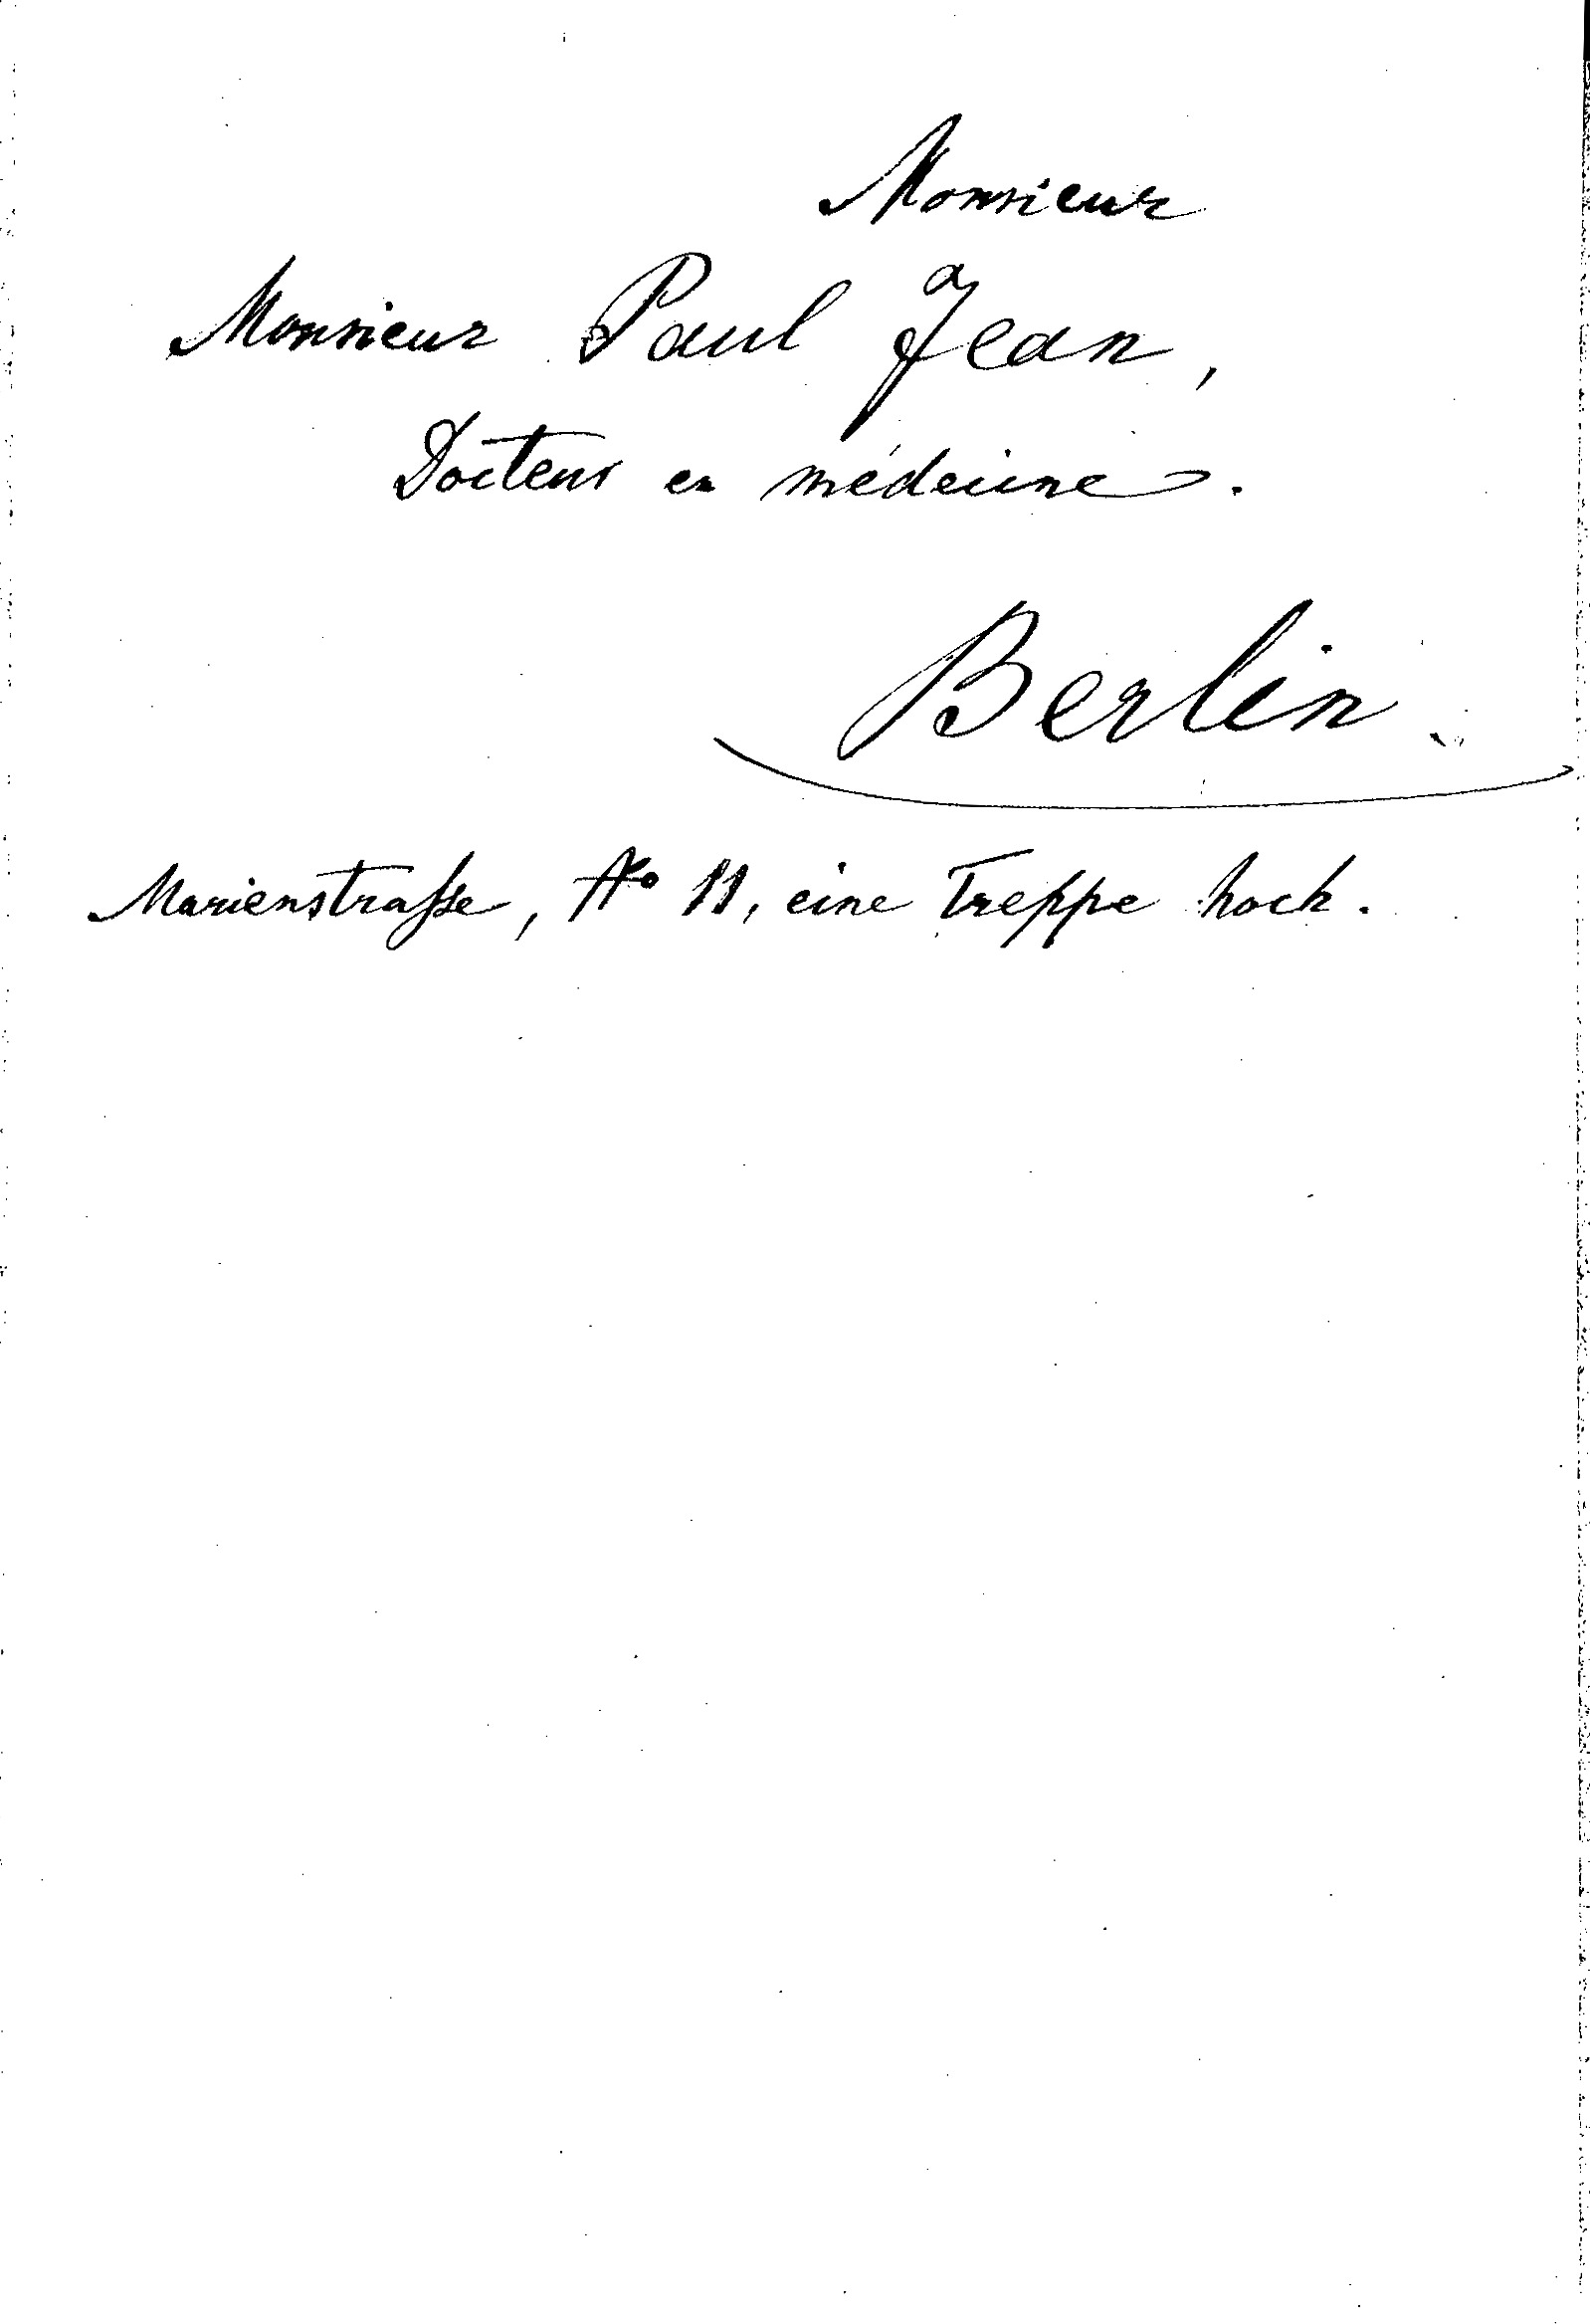 Monsieur
Monsieur Paul Jean,
Docteur en médecine.
Berlin.
Marienstraße, No 11, eine Treppe hoch.